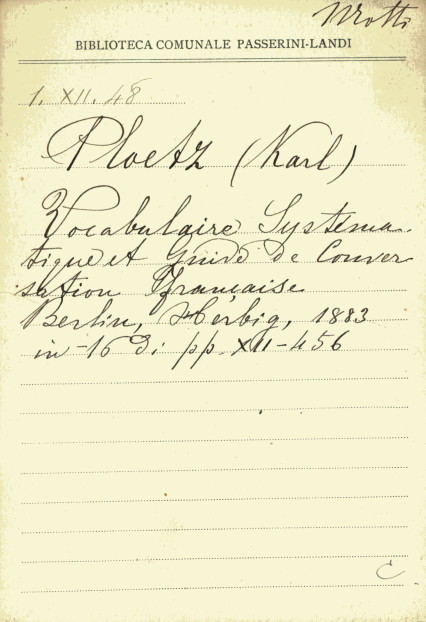 Mrotti
BIBLIOTECA COMUNALE PASSERINI-LANDI
1. XII. 48
Ploetz (Karl)
Vocabulaire Systema-
tique et Guide de Conver
sation Française
Berlin, Herbig, 1883
in-16 di pp XII-456
C